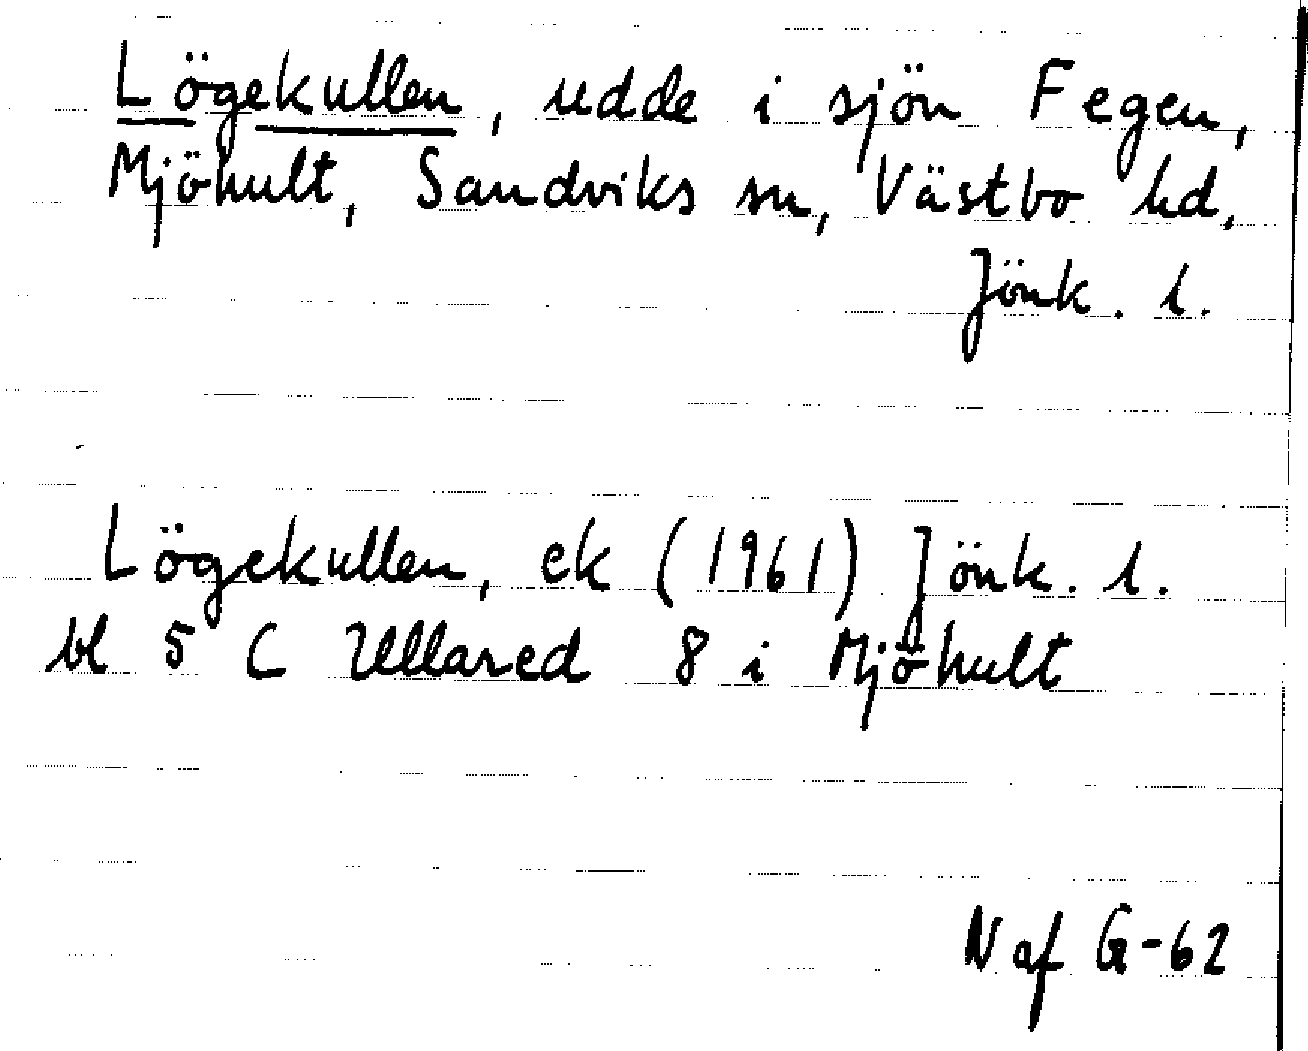 Lögekullen, udde i sjön Fegen,
Mjöhult, Sandviks sn, Västbo hd,
Jönk. l.
Lögekullen, ek (1961) Jönk. l.
bl 5 C Ullared 8 i Mjöhult
N af G-62